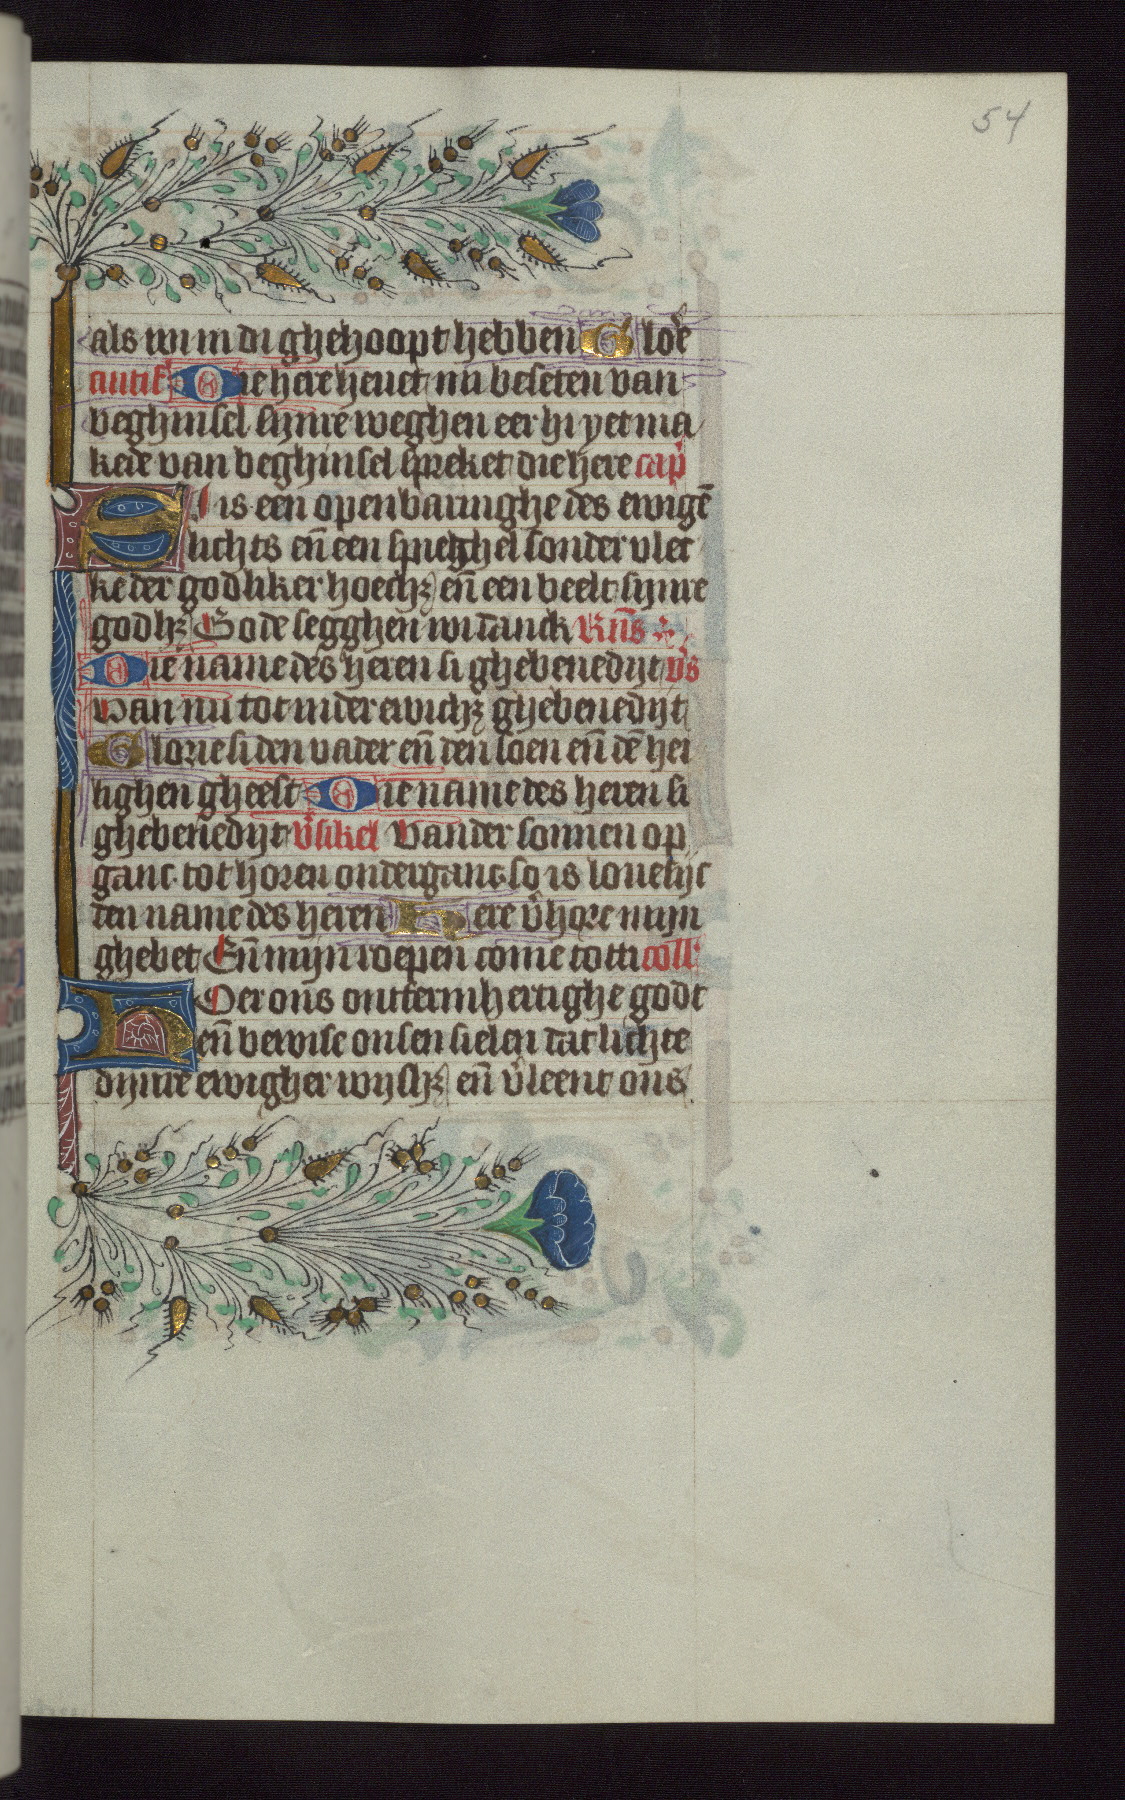 54
als wi in di ghehoopt hebben Gloē
antif Die here heuet mi beseten van
beghinsel synre weghen eer hi yet ma
kede van beghinsel spreket die here cap̄
Si is een openbaringhe des ewigē
lichts en̄ een spieghel sonder vlec
ke der godliker hoechꝫ en̄ een beelt synre
godhꝫ Gode segghen wi danck Rn̄s
Die name des heren si ghebenedijt v̄s
Van nu tot inder ewichꝫ ghebenedijt
Glorie si den vader en̄ den soen en̄ dē hei
lighen gheest Die name des heren si
ghebenedijt v̄sikel Vander sonnen op
ganc tot horen onderganc so is louelijc
den name des heren Here v̄hore mijn
ghebet En̄ mijn roepen come totti coll
Here ons ontfermhertighe godt
en̄ bewise onsen sielen dat lichte
dijnre ewigher wijshꝫ en̄ v̄leent ons